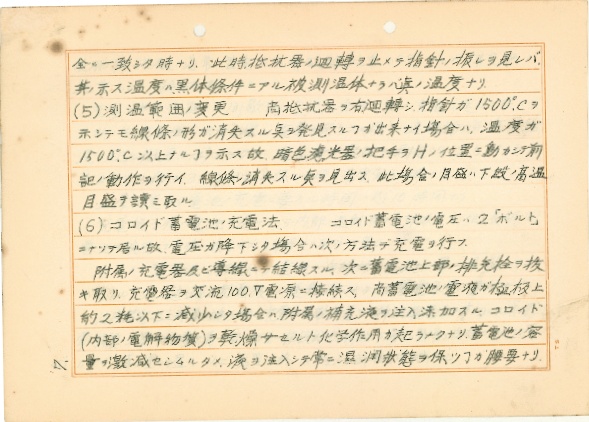 全ク一致シタ時ナリ. 此時抵抗器ノ廻轉ヲ止メテ指針ノ振レヲ見レバ,
其ノ示ス温度ハ黒体條件ニアル被測温体ナラバ真ノ温度ナリ
(5) 測温範囲ノ変更 尚抵抗器ヲ右廻轉シ, 指針ガ1500°Cヲ
示シテモ線條ノ形ガ消失スル点ヲ発見スルヿガ出来ナイ場合ハ, 温度ガ
1500°C以上ナルヿヲ示ス故, 暗色濾光器ノ把手ヲHノ位置ニ動カシテ前
記ノ動作ヲ行イ, 線條ノ消失スル点ヲ見出ス. 此場合ノ目盛ハ下段ノ高温
目盛ヲ讀ミ取ル
(6) コロイド蓄電池ノ充電法. コロイド蓄電池ノ電圧ハ2「ボルト」
ニナリテ居ル故, 電圧ガ降下シタ場合ハ次ノ方法デ充電ヲ行フ
附属ノ充電器及ビ導線ニテ結線スル. 次ニ蓄電池上部ノ排気栓ヲ抜
キ取リ, 充電器ヲ交流100V電源ニ接続ス. 尚蓄電池ノ電液ガ極板上
約2粍以下ニ減少シタ場合ハ附属ノ補充液ヲ注入添加スル. コロイド
(内部ノ電解物質)ヲ乾燥サセルト化学作用ガ起ラナクナリ, 蓄電池ノ容
量ヲ激減セシムルタメ, 液ヲ注入シテ常ニ湿潤状態ヲ保ツヿガ肝要ナリ.
17.